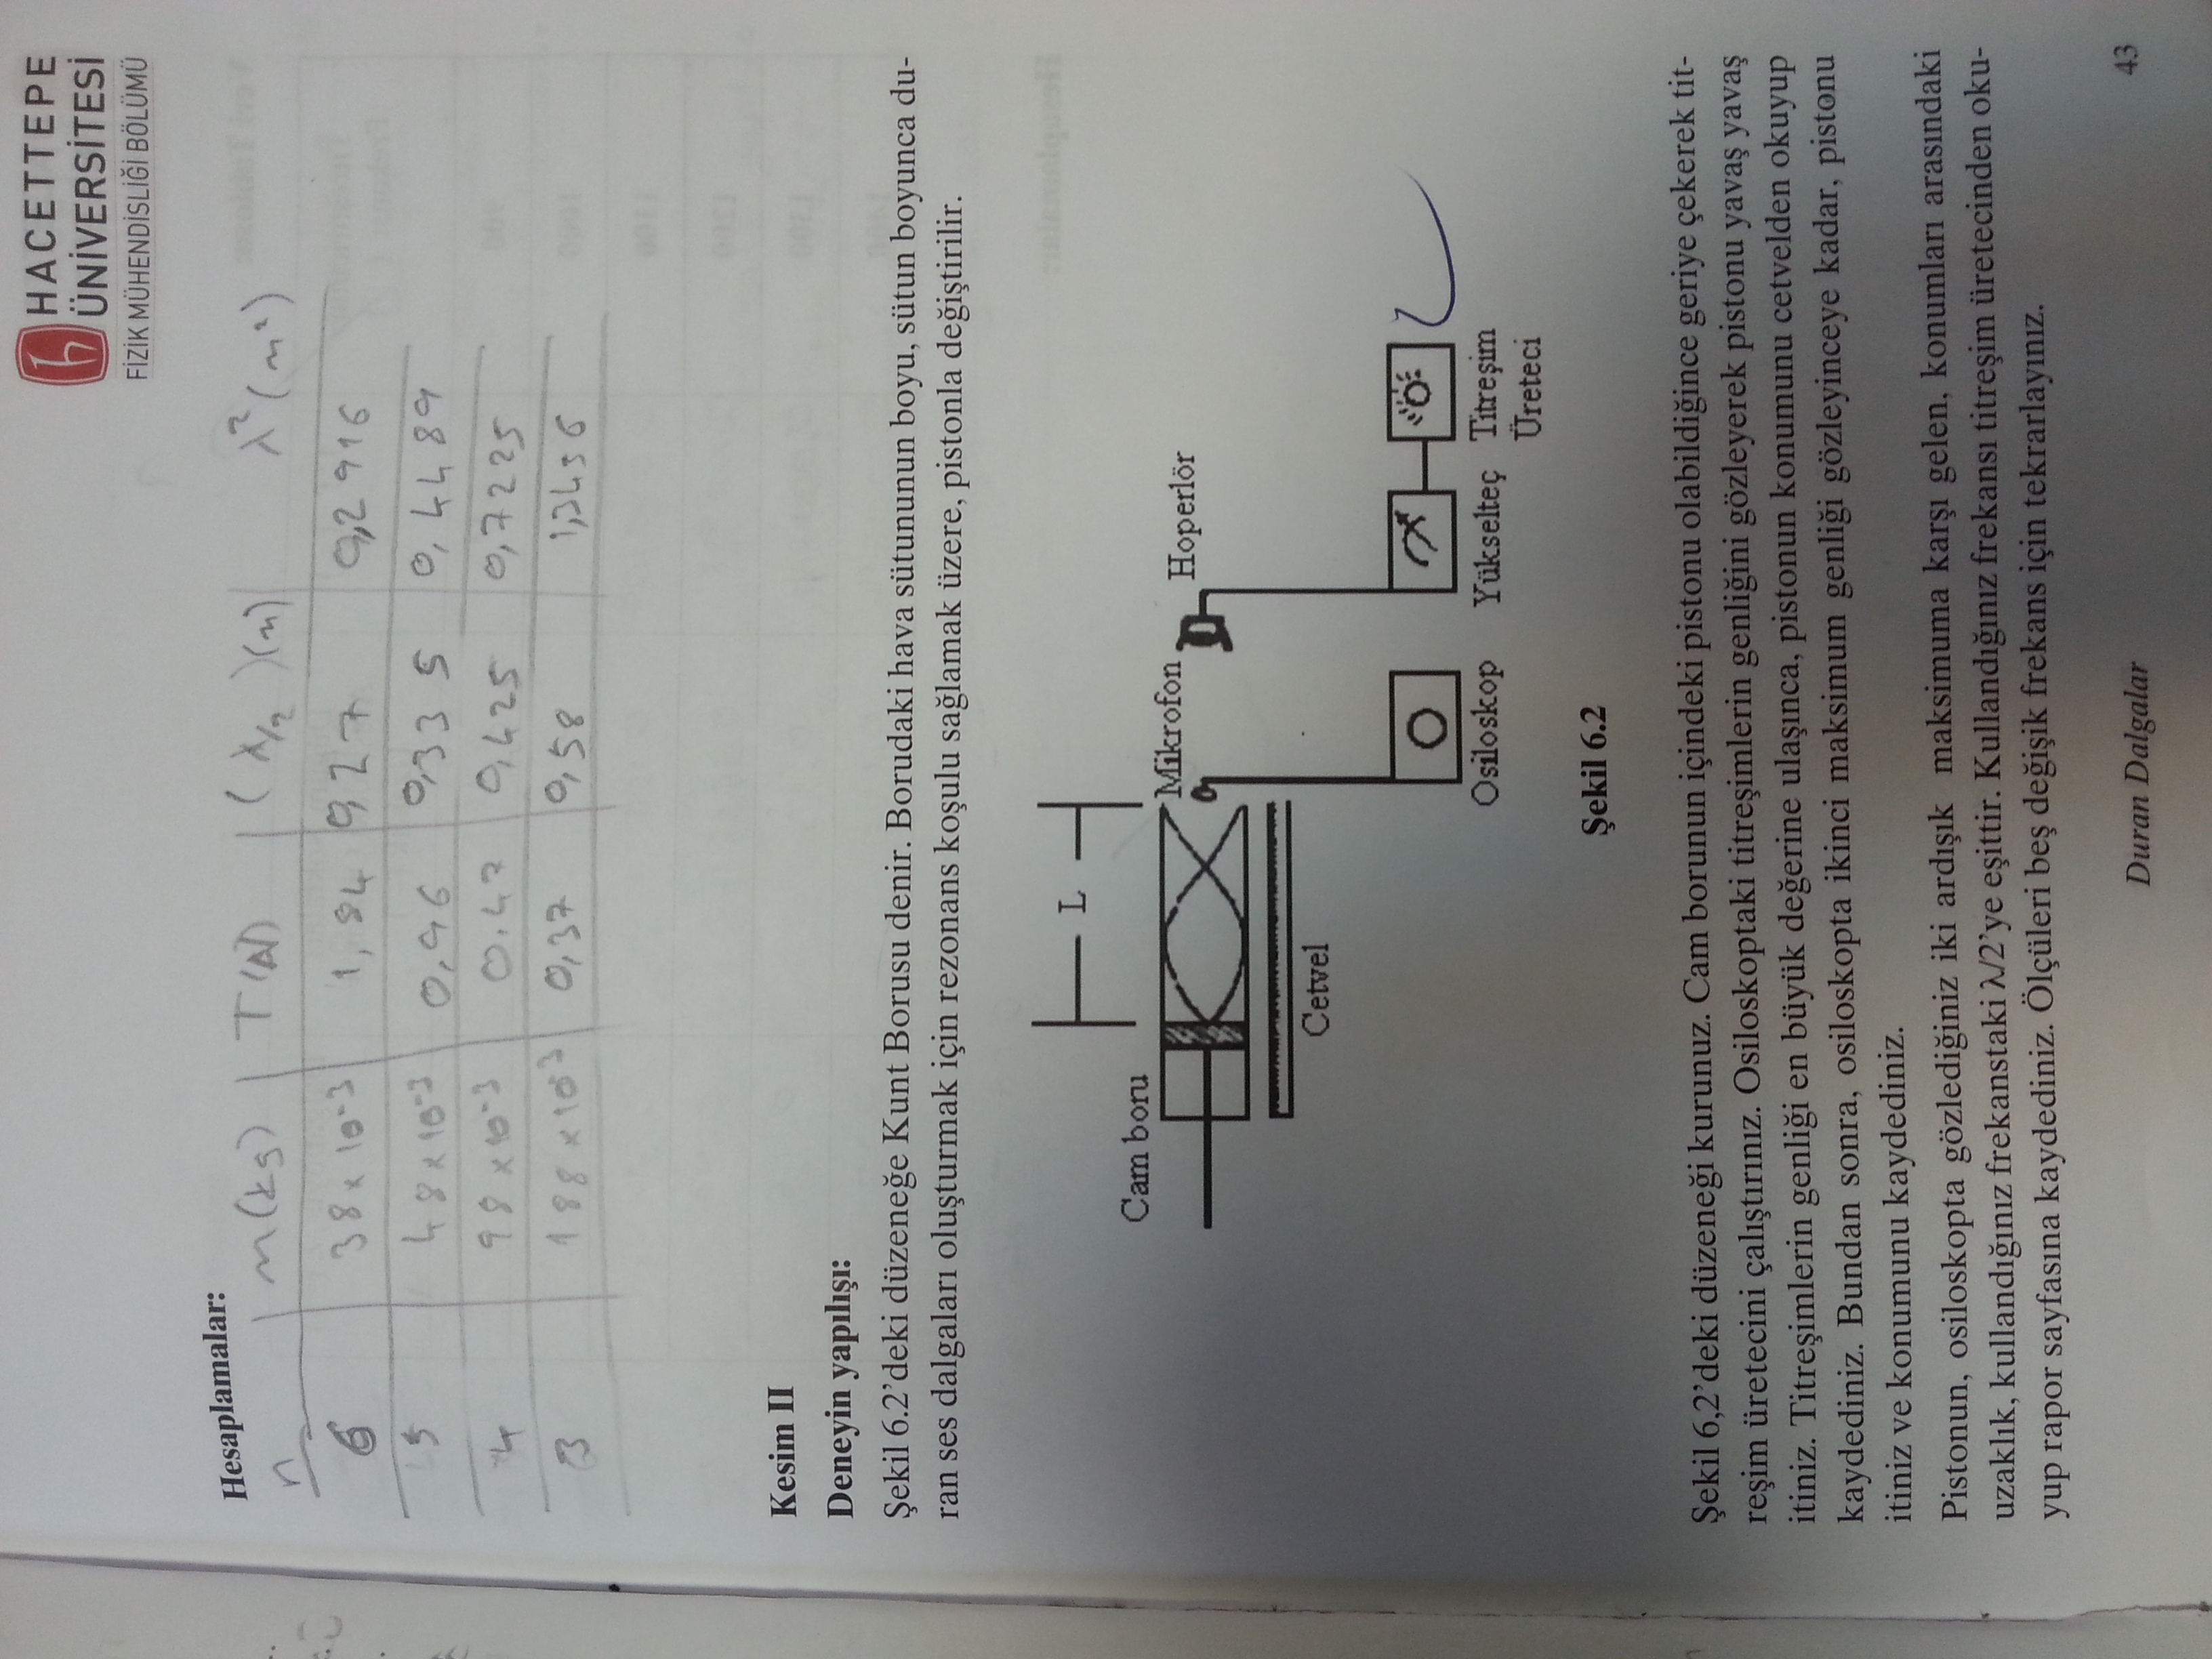 HACETTEPE
ÜNİVERSİTESİ
FİZİK MÜHENDİSLİĞİ BÖLÜMÜ
Hesaplamalar:
n m(kg) T(N) (λ/2)(m) λ²(m²)
6 38x10⁻³ 1,84 0,27 0,2916
5 48x10⁻³ 0,96 0,335 0,4489
4 98x10⁻³ 0.47 0,425 0,7225
3 188x10⁻³ 0,37 0,58 1,3456
Kesim II
Deneyin yapılışı:
Şekil 6.2'deki düzeneğe Kunt Borusu denir. Borudaki hava sütununun boyu, sütun boyunca du-
ran ses dalgaları oluşturmak için rezonans koşulu sağlamak üzere, pistonla değiştirilir.
L
Cam boru
Mikrofon
Hoperlör
Cetvel
Osiloskop Yükselteç Titreşim
Üreteci
Şekil 6.2
Şekil 6,2'deki düzeneği kurunuz. Cam borunun içindeki pistonu olabildiğince geriye çekerek tit-
reşim üretecini çalıştırınız. Osiloskoptaki titreşimlerin genliğini gözleyerek pistonu yavaş yavaş
itiniz. Titreşimlerin genliği en büyük değerine ulaşınca, pistonun konumunu cetvelden okuyup
kaydediniz. Bundan sonra, osiloskopta ikinci maksimum genliği gözleyinceye kadar, pistonu
itiniz ve konumunu kaydediniz.
Pistonun, osiloskopta gözlediğiniz iki ardışık maksimuma karşı gelen, konumları arasındaki
uzaklık, kullandığınız frekanstaki λ/2'ye eşittir. Kullandığınız frekansı titreşim üretecinden oku-
yup rapor sayfasına kaydediniz. Ölçüleri beş değişik frekans için tekrarlayınız.
Duran Dalgalar 43